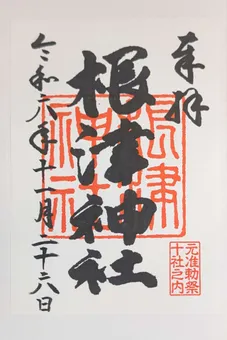 奉拝
根津神社
根津神社
元准勅祭
十社之内
令和六年十一月二十六日